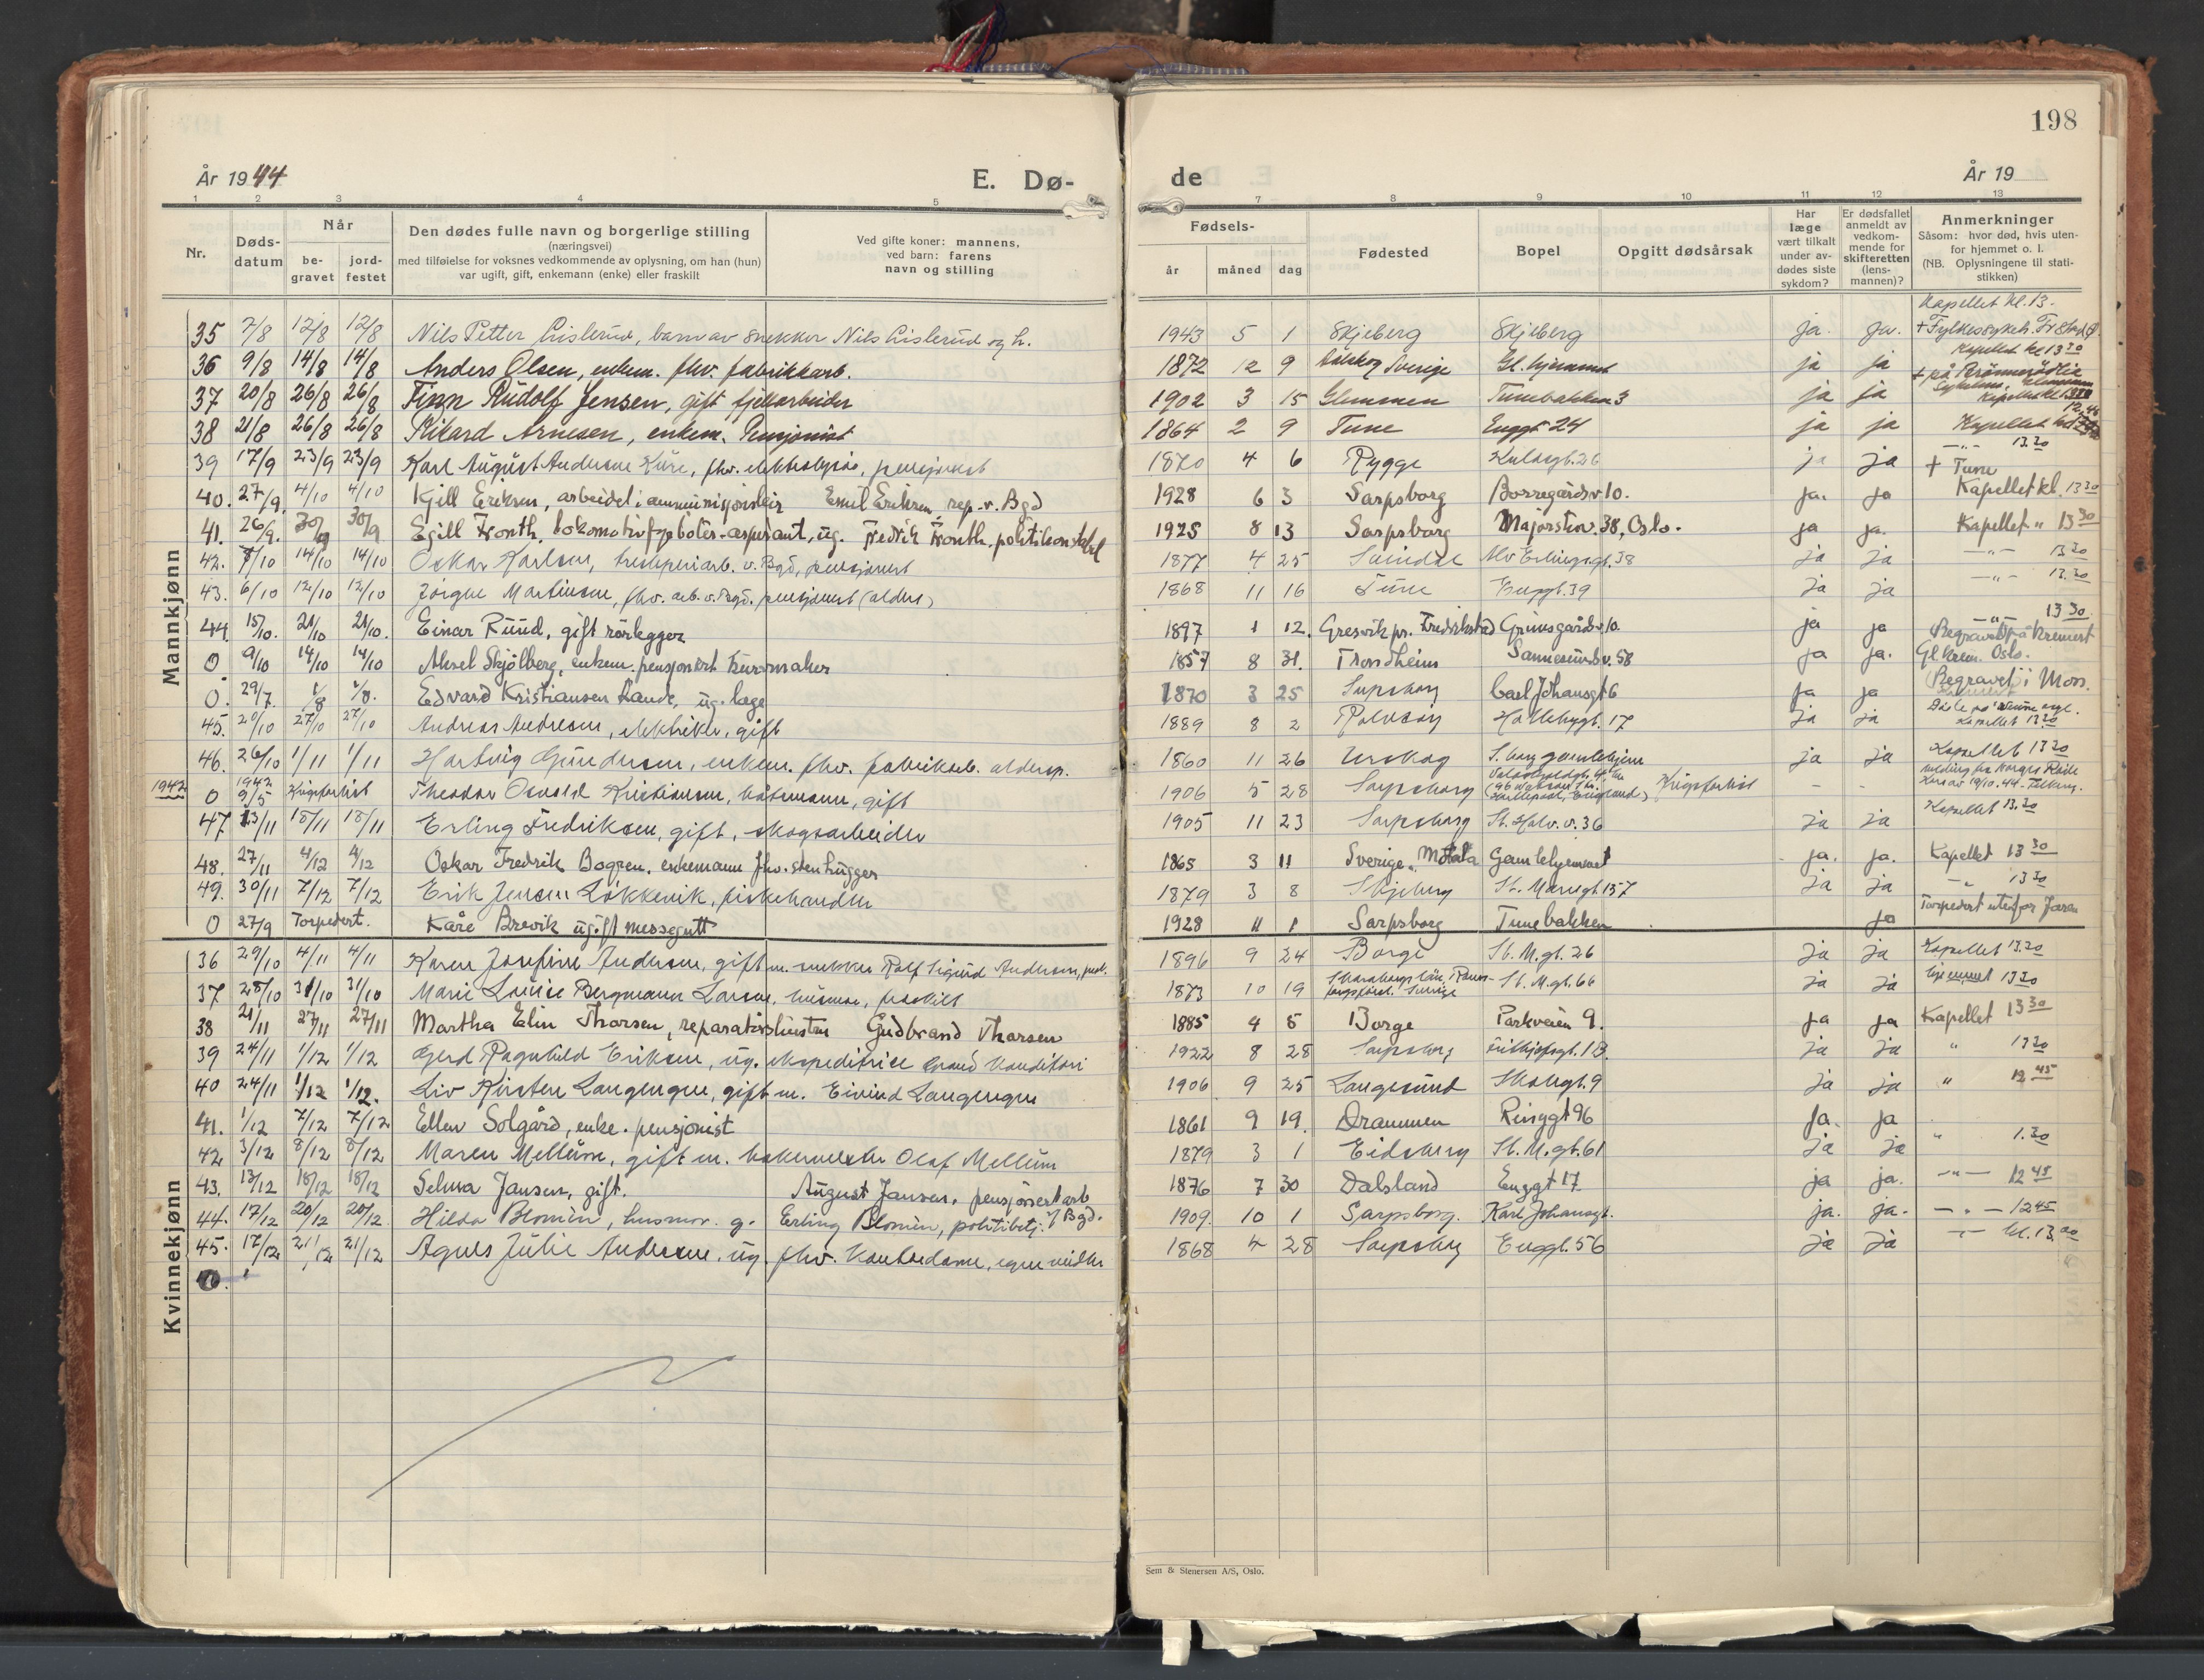 198
År 1944
E. Dø-
de
År 19
1 2 3 4 5 7 8 9 10 11 12 13
Nr.
Døds-
datum
Når
be-
gravet
jord-
festet
Den dødes fulle navn og borgerlige stilling
(næringsvei)
med tilføielse for voksnes vedkommende av oplysning, om han (hun)
var ugift, gift, enkemann (enke) eller fraskilt
Ved gifte koner: mannens,
ved barn: farens
navn og stilling
Fødsels-
år måned dag
Fødested
Bopel
Opgitt dødsårsak
Har
læge
vært tilkalt
under av-
dødes siste
sykdom?
Er dødsfallet
anmeldt av
vedkom-
mende for
skifteretten
(lens-
mannen)?
Anmerkninger
Såsom: hvor død, hvis uten-
for hjemmet o. l.
(NB. Oplysningene til stati-
stikken)
Mannkjønn
Kapellet kl. 13.
35 7/8 12/8 12/8 Nils Petter Lislerud, barn av snekker Nils Lislerud og h. 1943 5 1 Skjeberg Skjeberg ja. ja. + Fylkessykeh.
36 9/8 14/8 14/8 Anders Olsen, enkem. fhv. fabrikkarb. 1872 12 9 Sverige Gl. hjemmet ja ja Kapellet kl 13 30
37 20/8 26/8 26/8 Finn Rudolf Jensen, gift fjellarbeider 1902 3 15 Glemmen Tunebakken 3 ja ja
38 21/8 26/8 26/8 Rikard Arnesen, enkem. Pensjonist 1864 2 9 Tune Enggt 24 ja ja Kapellet
39 17/9 23/9 23/9 Karl August Andersen Kure, fhv. pensjonist 1870 4 6 Rygge 26 ja ja 13.30
40. 27/9 4/10 4/10 Kjell Eriksen, arbeidet i ammunisjonsleir Emil Eriksen rep. v. Bgd 1928 6 3 Sarpsborg Borregårdsv 10. ja. ja + Tune Kapellet kl. 13 30
41. 26/9. 30/9 30/9 Egill Fronth, lokomotivfyrbøter-aspirant, ug. Fredrik Fronth. politikonstabel 1925 8 13 Sarpsborg Majorstuv. 38, Oslo. ja ja. Kapellet " 13 30
42. 7/10 14/10 14/10 Oskar Karlsen, tresliperiarb. v. Bgd, pensjonert 1877 4 25 Alv Erlingsgt. 38 ja ja — " — 13 30
43. 6/10 12/10 12/10 Jørgen Martinsen, fhv. arb. v. Bgd. pensjonert (alders) 1868 11 16 Tune Enggt. 39 ja ja — " — 13.30
44. 15/10. 21/10 21/10. Einar Ruud, gift rørlegger 1897 1 12. Gresvik pr. Fredrikstad Grimsgårdsv 10. ja ja — " — 13 30
0 9/10 14/10 14/10 Aksel Skjølberg, enkem. pensjonert buntmaker 1857 8 31. Trondheim Sannesundsv. 58 ja ja. Gl. krem. Oslo.
0. 29/7 1/8 1/8. Edvard Kristiansen Rande, ug. lege 1870 3 25 Sarpsborg Carl Johansgt 6 ja ja (Begravet) i Moss.
45. 20/10 27/10 27/10 Andreas Andresen, elektriker, gift 1889 8 2 Rolvsøy Hallebygt. 17 ja ja Kapellet 13 20
46. 26/10 1/11 1/11 Hartvig Gundersen, enkem. fhv. fabrikarb. aldersp. 1860 11 26 Urskog S. borg gamlehjem ja ja Kapellet 13 20
1942 0 1942 9/5 Krigsforlist Theodor Osvald Kristiansen, båtsmann, gift 1906 5 28 Sarpsborg Krigsforlist – –
47 13/11 18/11 18/11 Erling Fredriksen, gift, skogsarbeider 1905 11 23 Sarpsborg St. Halv. v. 36 ja ja Kapellet 13.30
48. 27/11 4/12 4/12 Oskar Fredrik Bogren. enkemann fhv. stenhugger 1865 3 11 Sverige. Motala Gamlehjemmet ja. ja. Kapellet 13 30
49. 30/11 7/12 7/12 Erik Jensen Løkkevik, fiskehandler 1879 3 8 Skjeberg St. Mariegt 157 ja ja — " 13 30
0 27/9 Torpedert. Kåre Brevik ugift messegutt 1928 11 1 Sarpsborg Tunebakken ja Torpedert utenfor Jæren
Kvinnekjønn
36 29/10 4/11 4/11 Karen Josefine Andersen, gift m. snekker Rolf Sigurd Andersen 1896 9 24 Borge St. M. gt. 26 ja ja Kapellet 13.20
37 28/10 31/10 31/10 Marie Louise Bergmann Larsen, husmor, fraskilt 1873 10 19 Sverige St. M. gt. 66 ja ja hjemmet 13 20
38 21/11 27/11 27/11 Martha Elin Thorsen, reparatørs hustru Gudbrand Thorsen 1885 4 5 Borge Parkveien 9. ja ja Kapellet 13 30
39 24/11 1/12 1/12 Gerd Ragnhild Eriksen, ug. ekspeditrise Grand Konditori 1922 8 28 Sarpsborg Fritjofsgt. 13. ja ja " 13 20
40 24/11 1/12 1/12. Liv Kirsten Langengen, gift m. Eivind Langengen 1906 9 25 Langesund Skolegt. 9 ja ja " 12 45
41. 1/12 7/12 7/12 Ellen Solgård, enke. pensjonist 1861 9 19. Drammen Ringgt 96 ja. ja
42 3/12 8/12 8/12 Maren Mellum, gift m. bakermester Olaf Mellum 1879 3 1 Eidsberg St. M. gt. 61 ja ja " 1.30
43. 13/12 18/12 18/12 Selma Jansen, gift. August Jansen, pensjonert arb v/ Bgd. 1876 7 30 Dalsland Enggt 17 ja ja. — " — 12 45
44. 17/12 20/12 20/12 Hilda Blomén, husmor. g. Erling Blomén, politibetj. 1909. 10 1 Sarpsborg. Karl Johansgt. ja. ja. — " — 12 45
45. 17/12 21/12 21/12 Agnes Julie Andersen, ug. fhv. kontordame, egne midler 1868 4 28 Sarpsborg Enggt. 56 ja ja — " — kl. 13.00
Sem & Stenersen A/S, Oslo.